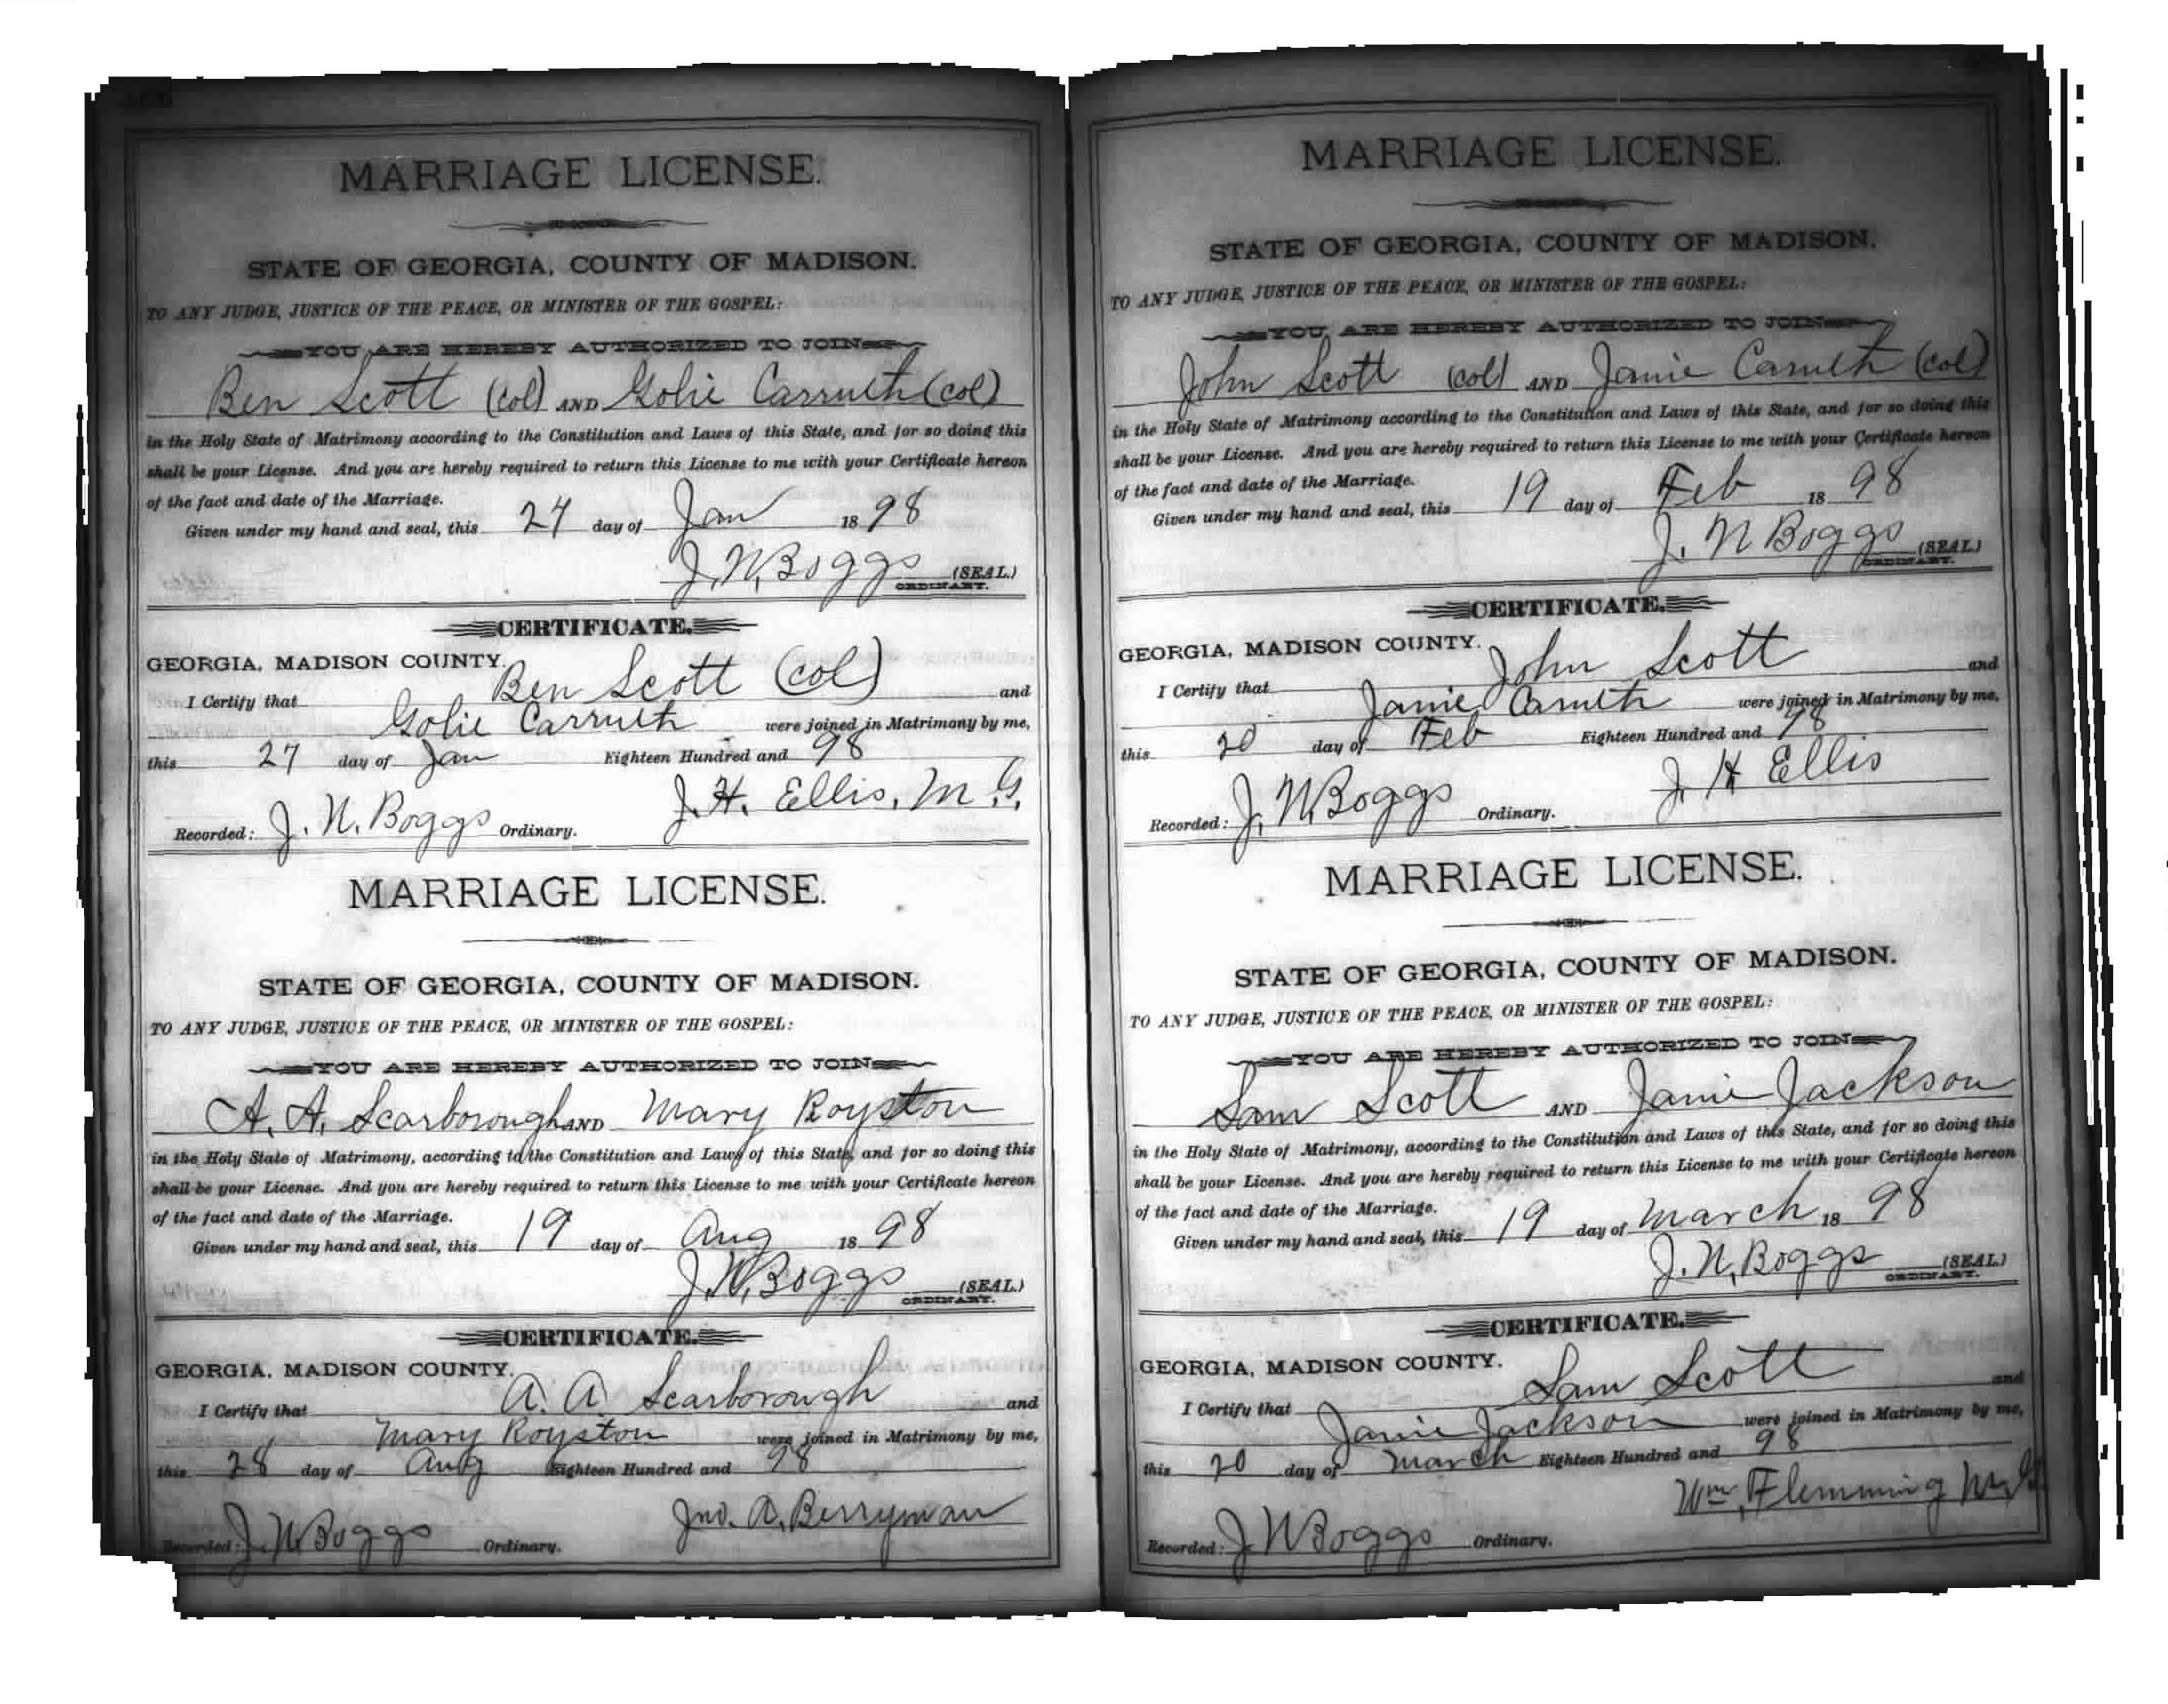 MARRIAGE LICENSE.
STATE OF GEORGIA, COUNTY OF MADISON.
TO ANY JUDGE, JUSTICE OF THE PEACE, OR MINISTER OF THE GOSPEL:
YOU ARE HEREBY AUTHORIZED TO JOIN
Ben Scott (col) AND Golie Carruth (col)
in the Holy State of Matrimony according to the Constitution and Laws of this State, and for so doing this
shall be your License. And you are hereby required to return this License to me with your Certificate hereon
of the fact and date of the Marriage.
Given under my hand and seal, this 24 day of Jan 1898
J. N. Boggs (SEAL.)
ORDINARY.
CERTIFICATE.
GEORGIA, MADISON COUNTY.
I Certify that Ben Scott (col) and
Golie Carruth were joined in Matrimony by me,
this 27 day of Jan Eighteen Hundred and 98
J. H. Ellis, M. G.
Recorded: J. N. Boggs Ordinary.
MARRIAGE LICENSE.
STATE OF GEORGIA, COUNTY OF MADISON.
TO ANY JUDGE, JUSTICE OF THE PEACE, OR MINISTER OF THE GOSPEL:
YOU ARE HEREBY AUTHORIZED TO JOIN
A. A. Scarborough AND Mary Royston
in the Holy State of Matrimony, according to the Constitution and Laws of this State, and for so doing this
shall be your License. And you are hereby required to return this License to me with your Certificate hereon
of the fact and date of the Marriage.
Given under my hand and seal, this 19 day of Aug 1898
J. N. Boggs (SEAL.)
ORDINARY.
CERTIFICATE.
GEORGIA, MADISON COUNTY.
I Certify that A. A Scarborough and
Mary Royston were joined in Matrimony by me,
this 28 day of Aug Eighteen Hundred and 98
Jno. A. Berryman
Recorded: J. N Boggs Ordinary.
MARRIAGE LICENSE.
STATE OF GEORGIA, COUNTY OF MADISON.
TO ANY JUDGE, JUSTICE OF THE PEACE, OR MINISTER OF THE GOSPEL:
YOU ARE HEREBY AUTHORIZED TO JOIN
John Scott (col) AND Janie Caruth (col)
in the Holy State of Matrimony according to the Constitution and Laws of this State, and for so doing this
shall be your License. And you are hereby required to return this License to me with your Certificate hereon
of the fact and date of the Marriage.
Given under my hand and seal, this 19 day of Feb 1898
J. N Boggs (SEAL.)
ORDINARY.
CERTIFICATE.
GEORGIA, MADISON COUNTY.
I Certify that John Scott and
Janie Caruth were joined in Matrimony by me,
this 20 day of Feb Eighteen Hundred and 98
J. H Ellis
Recorded: J. N. Boggs Ordinary.
MARRIAGE LICENSE.
STATE OF GEORGIA, COUNTY OF MADISON.
TO ANY JUDGE, JUSTICE OF THE PEACE, OR MINISTER OF THE GOSPEL:
YOU ARE HEREBY AUTHORIZED TO JOIN
Sam Scott AND Janie Jackson
in the Holy State of Matrimony, according to the Constitution and Laws of this State, and for so doing this
shall be your License. And you are hereby required to return this License to me with your Certificate hereon
of the fact and date of the Marriage.
Given under my hand and seal, this 19 day of March 1898
J. N. Boggs (SEAL.)
ORDINARY.
CERTIFICATE.
GEORGIA, MADISON COUNTY.
I Certify that Sam Scott and
Janie Jackson were joined in Matrimony by me,
this 20 day of March Eighteen Hundred and 98
Wm. Flemming M. G.
Recorded: J. N Boggs Ordinary.